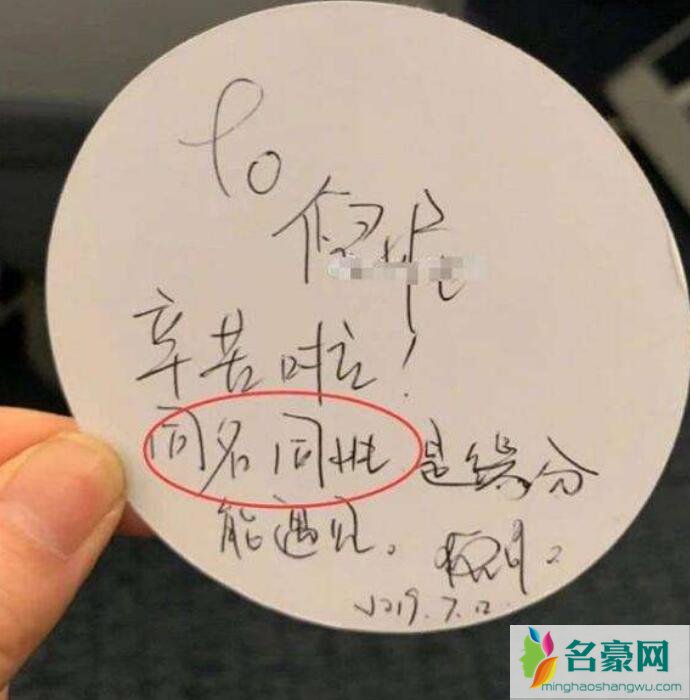 To
辛苦啦！
同名同姓 是缘分
能遇见。
2019.7.12
名豪网
minghaoshangwu.com